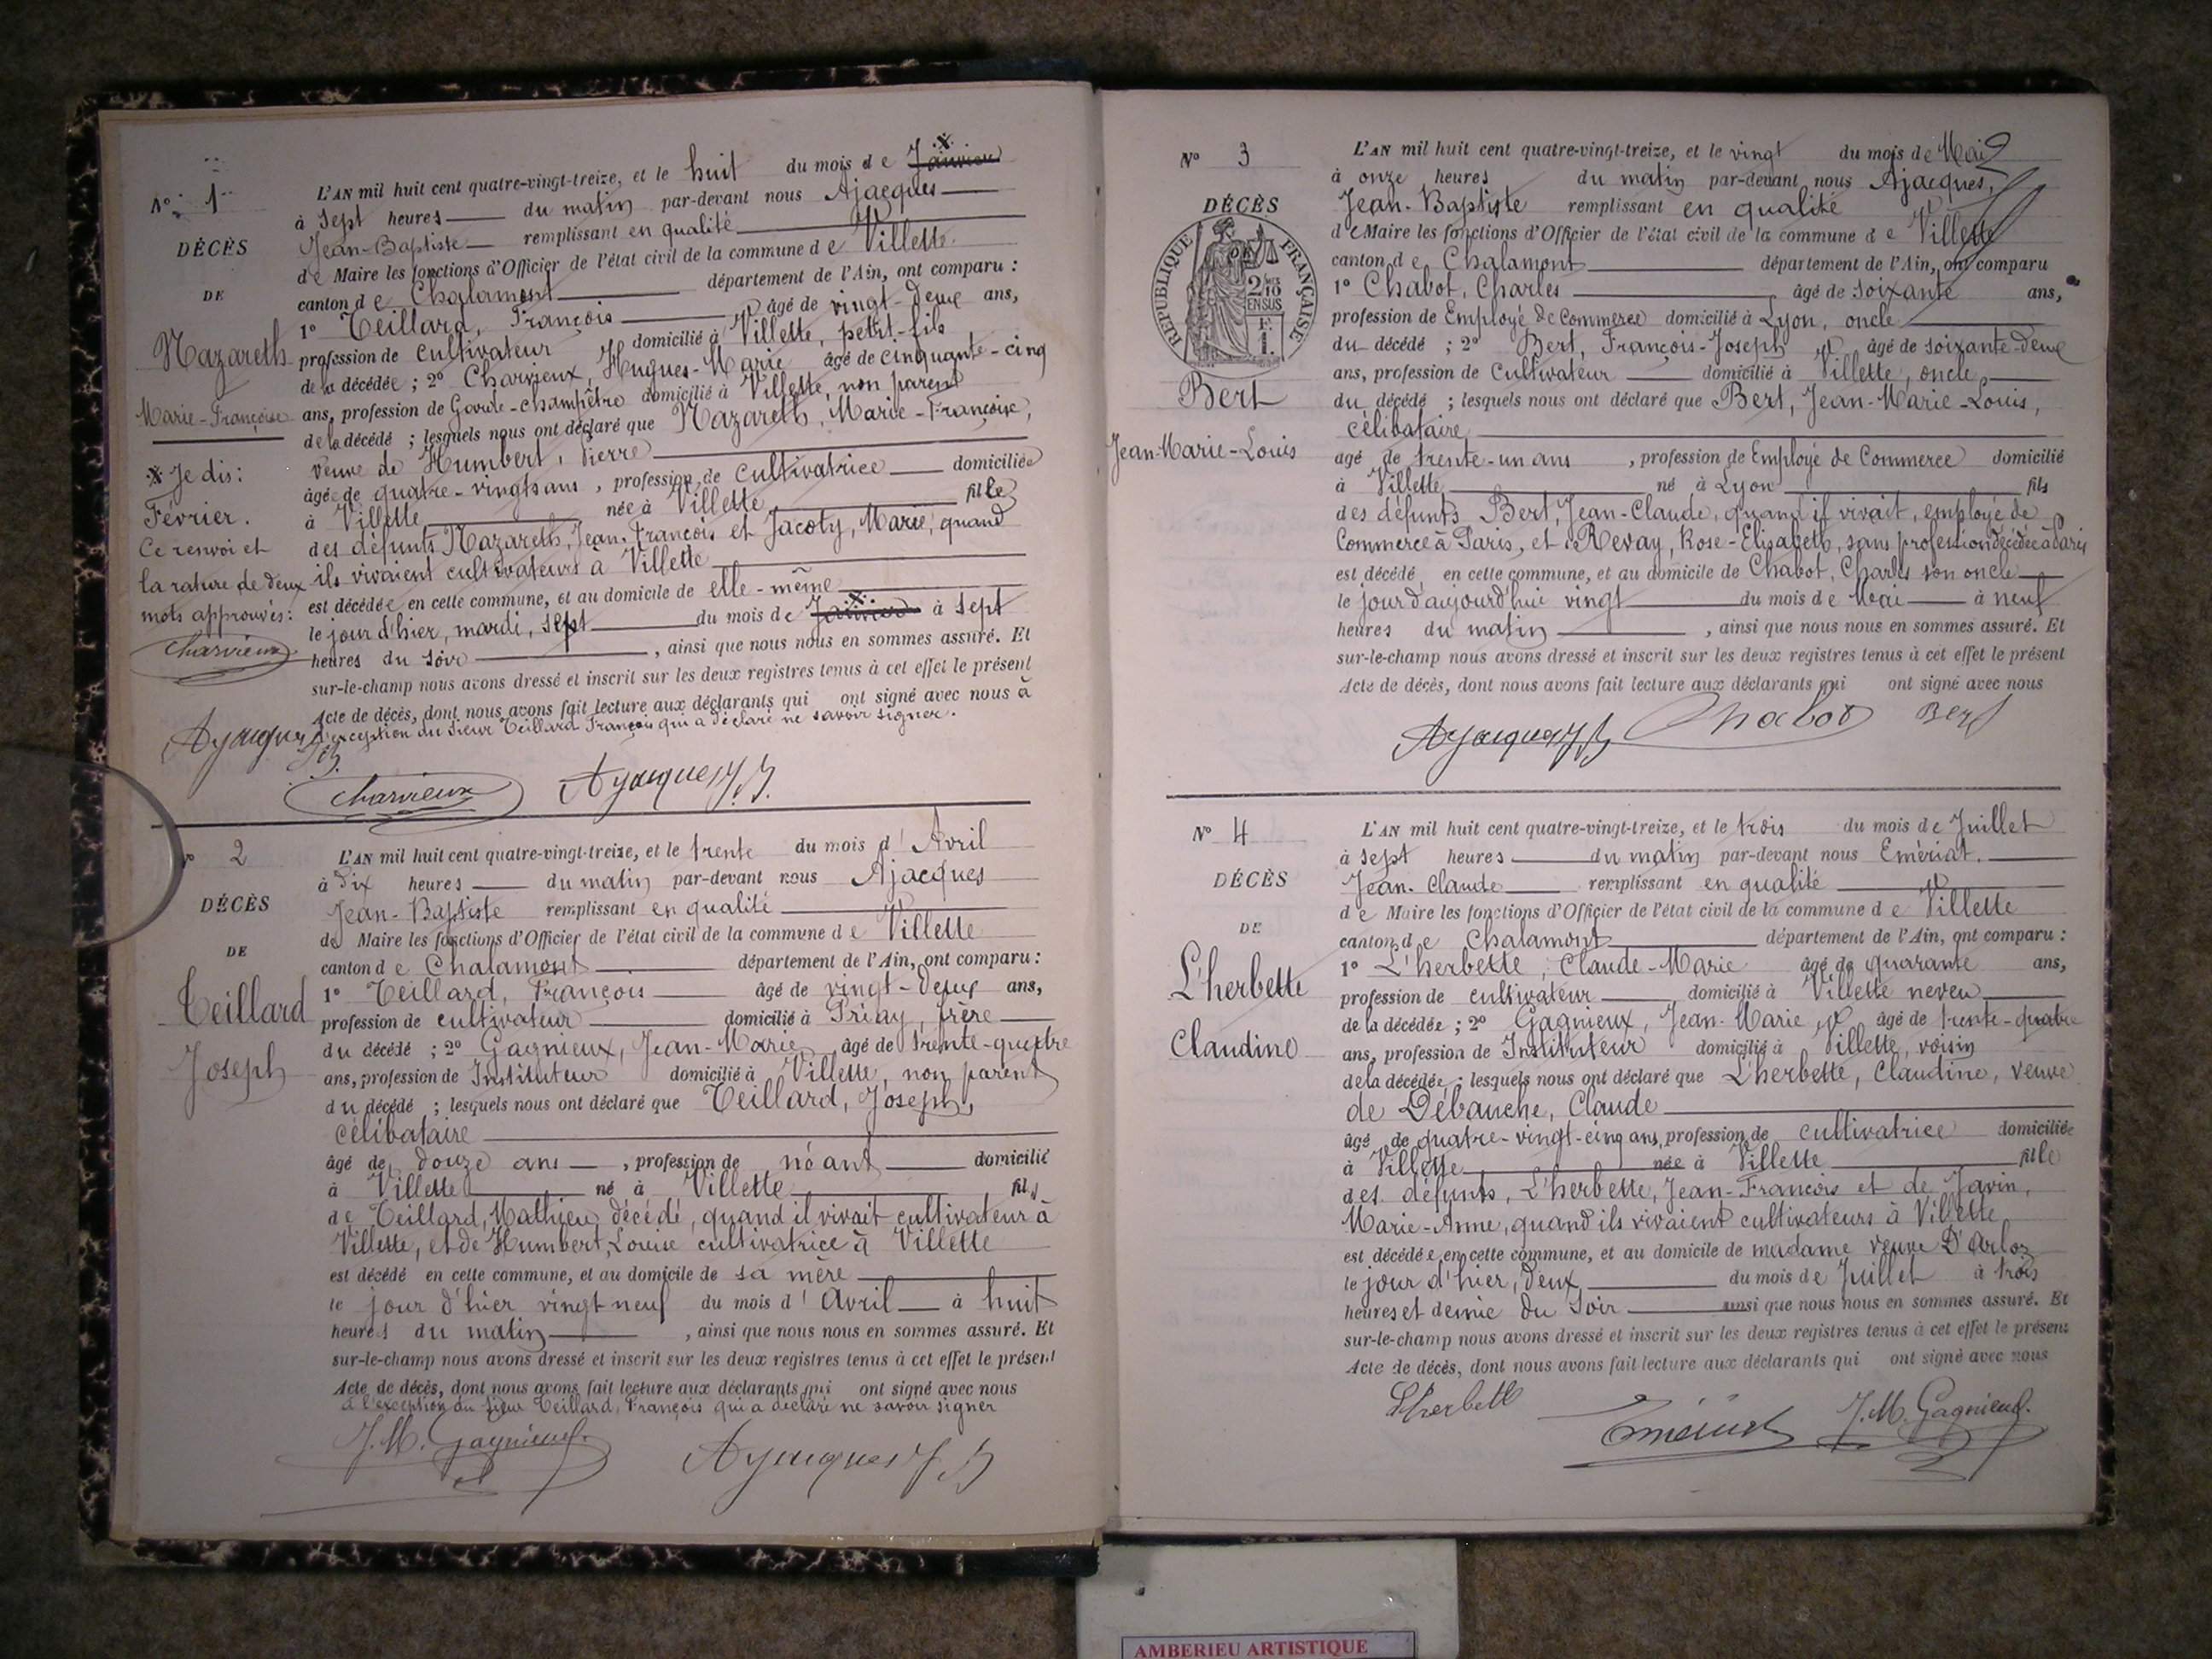 N° 1
DÉCÈS
DE
Nazareth
Marie-Françoise
X Je dis:
Février.
Ce renvoi et
la rature de deux
mots approuvés:
Charvieux
L'AN mil huit cent quatre-vingt-treize, et le huit du mois de Janvier X
à sept heures du matin par-devant nous Ajacques
Jean-Baptiste remplissant en qualité
de Maire les fonctions d'Officier de l'état civil de la commune de Villette
canton de Chalamont département de l'Ain, ont comparu :
1° Teillard, François âgé de vingt-deux ans,
profession de cultivateur domicilié à Villette, petit-fils
de la décédée ; 2° Charvieux, Hugues-Marie âgé de cinquante-cinq
ans, profession de Garde-champêtre domicilié à Villette, non parent
de la décédé ; lesquels nous ont déclaré que Nazareth, Marie-Françoise,
veuve de Humbert, Pierre
âgée de quatre-vingts ans, profession de cultivatrice domiciliée
à Villette née à Villette fille
des défunts Nazareth, Jean-François et Jacoty, Marie, quand
ils vivaient cultivateurs à Villette
est décédée en cette commune, et au domicile de elle-même
le jour d'hier, mardi, sept du mois de Janvier X à sept
heures du soir, ainsi que nous nous en sommes assuré. Et
sur-le-champ nous avons dressé et inscrit sur les deux registres tenus à cet effet le présent
Acte de décès, dont nous avons fait lecture aux déclarants qui ont signé avec nous à
l'exception du sieur Teillard François qui a déclaré ne savoir signer.
Ajacques J.B.
Charvieux Ajacques J.B.
N° 2
DÉCÈS
DE
Teillard
Joseph
L'AN mil huit cent quatre-vingt-treize, et le trente du mois d'Avril
à Dix heures du matin par-devant nous Ajacques
Jean-Baptiste remplissant en qualité
de Maire les fonctions d'Officier de l'état civil de la commune de Villette
canton de Chalamont département de l'Ain, ont comparu :
1° Teillard, François âgé de vingt-deux ans,
profession de cultivateur domicilié à Priay, frère
du décédé ; 2° Gagnieux, Jean-Marie âgé de trente-quatre
ans, profession de Instituteur domicilié à Villette, non parent
du décédé ; lesquels nous ont déclaré que Teillard, Joseph,
célibataire
âgé de douze ans, profession de néant domicilié
à Villette né à Villette fils
de Teillard, Mathieu, décédé, quand il vivait cultivateur à
Villette, et de Humbert, Louise cultivatrice à Villette
est décédé en cette commune, et au domicile de sa mère
le jour d'hier vingt neuf du mois d'Avril à huit
heures du matin, ainsi que nous nous en sommes assuré. Et
sur-le-champ nous avons dressé et inscrit sur les deux registres tenus à cet effet le présent
Acte de décès, dont nous avons fait lecture aux déclarants qui ont signé avec nous
à l'exception du sieur Teillard, François qui a déclaré ne savoir signer
J.M. Gagnieux. Ajacques J B
N° 3
DÉCÈS
RÉPUBLIQUE FRANÇAISE
2/10
EN SUS
Bert
Jean-Marie-Louis
L'AN mil huit cent quatre-vingt-treize, et le vingt du mois de Mai
à onze heures du matin par-devant nous Ajacques,
Jean-Baptiste remplissant en qualité
de Maire les fonctions d'Officier de l'état civil de la commune de Villette
canton de Chalamont département de l'Ain, ont comparu
1° Chabot, Charles âgé de soixante ans,
profession de Employé de Commerce domicilié à Lyon, oncle
du décédé ; 2° Bert, François-Joseph âgé de soixante-deux
ans, profession de Cultivateur domicilié à Villette, oncle
du décédé ; lesquels nous ont déclaré que Bert, Jean-Marie-Louis,
célibataire
agé de trente-un ans, profession de Employé de Commerce domicilié
à Villette né à Lyon fils
des défunts Bert, Jean-Claude, quand il vivait, employé de
Commerce à Paris, et de Revay, Rose-Elisabeth, sans profession décédée à Paris
est décédé en cette commune, et au domicile de Chabot, Charles son oncle
le jour d'aujourd'hui vingt du mois de Mai à neuf
heures du matin, ainsi que nous nous en sommes assuré. Et
sur-le-champ nous avons dressé et inscrit sur les deux registres tenus à cet effet le présent
Acte de décès, dont nous avons fait lecture aux déclarants qui ont signé avec nous
Ajacques J B Chabot Bert
N° 4
DÉCÈS
DE
L'herbette
Claudine
L'AN mil huit cent quatre-vingt-treize, et le trois du mois de Juillet
à sept heures du matin par-devant nous Emériat.
Jean-Claude remplissant en qualité
de Maire les fonctions d'Officier de l'état civil de la commune de Villette
canton de Chalamont département de l'Ain, ont comparu :
1° L'herbette, Claude-Marie âgé de quarante ans,
profession de cultivateur domicilié à Villette neveu
de la décédée ; 2° Gagnieux, Jean-Marie, âgé de trente-quatre
ans, profession de Instituteur domicilié à Villette, voisin
de la décédée ; lesquels nous ont déclaré que L'herbette, Claudine, veuve
de Débanche, Claude
âgé de quatre-vingt-cinq ans, profession de cultivatrice domiciliée
à Villette née à Villette fille
des défunts, L'herbette, Jean-François et de Javin,
Marie-Anne, quand ils vivaient cultivateurs à Villette
est décédée en cette commune, et au domicile de madame veuve D'Arloz
le jour d'hier, deux du mois de Juillet à trois
heures et demie du soir ainsi que nous nous en sommes assuré. Et
sur-le-champ nous avons dressé et inscrit sur les deux registres tenus à cet effet le présent
Acte de décès, dont nous avons fait lecture aux déclarants qui ont signé avec nous
Lherbette Emériat J.M. Gagnieux.
AMBERIEU ARTISTIQUE